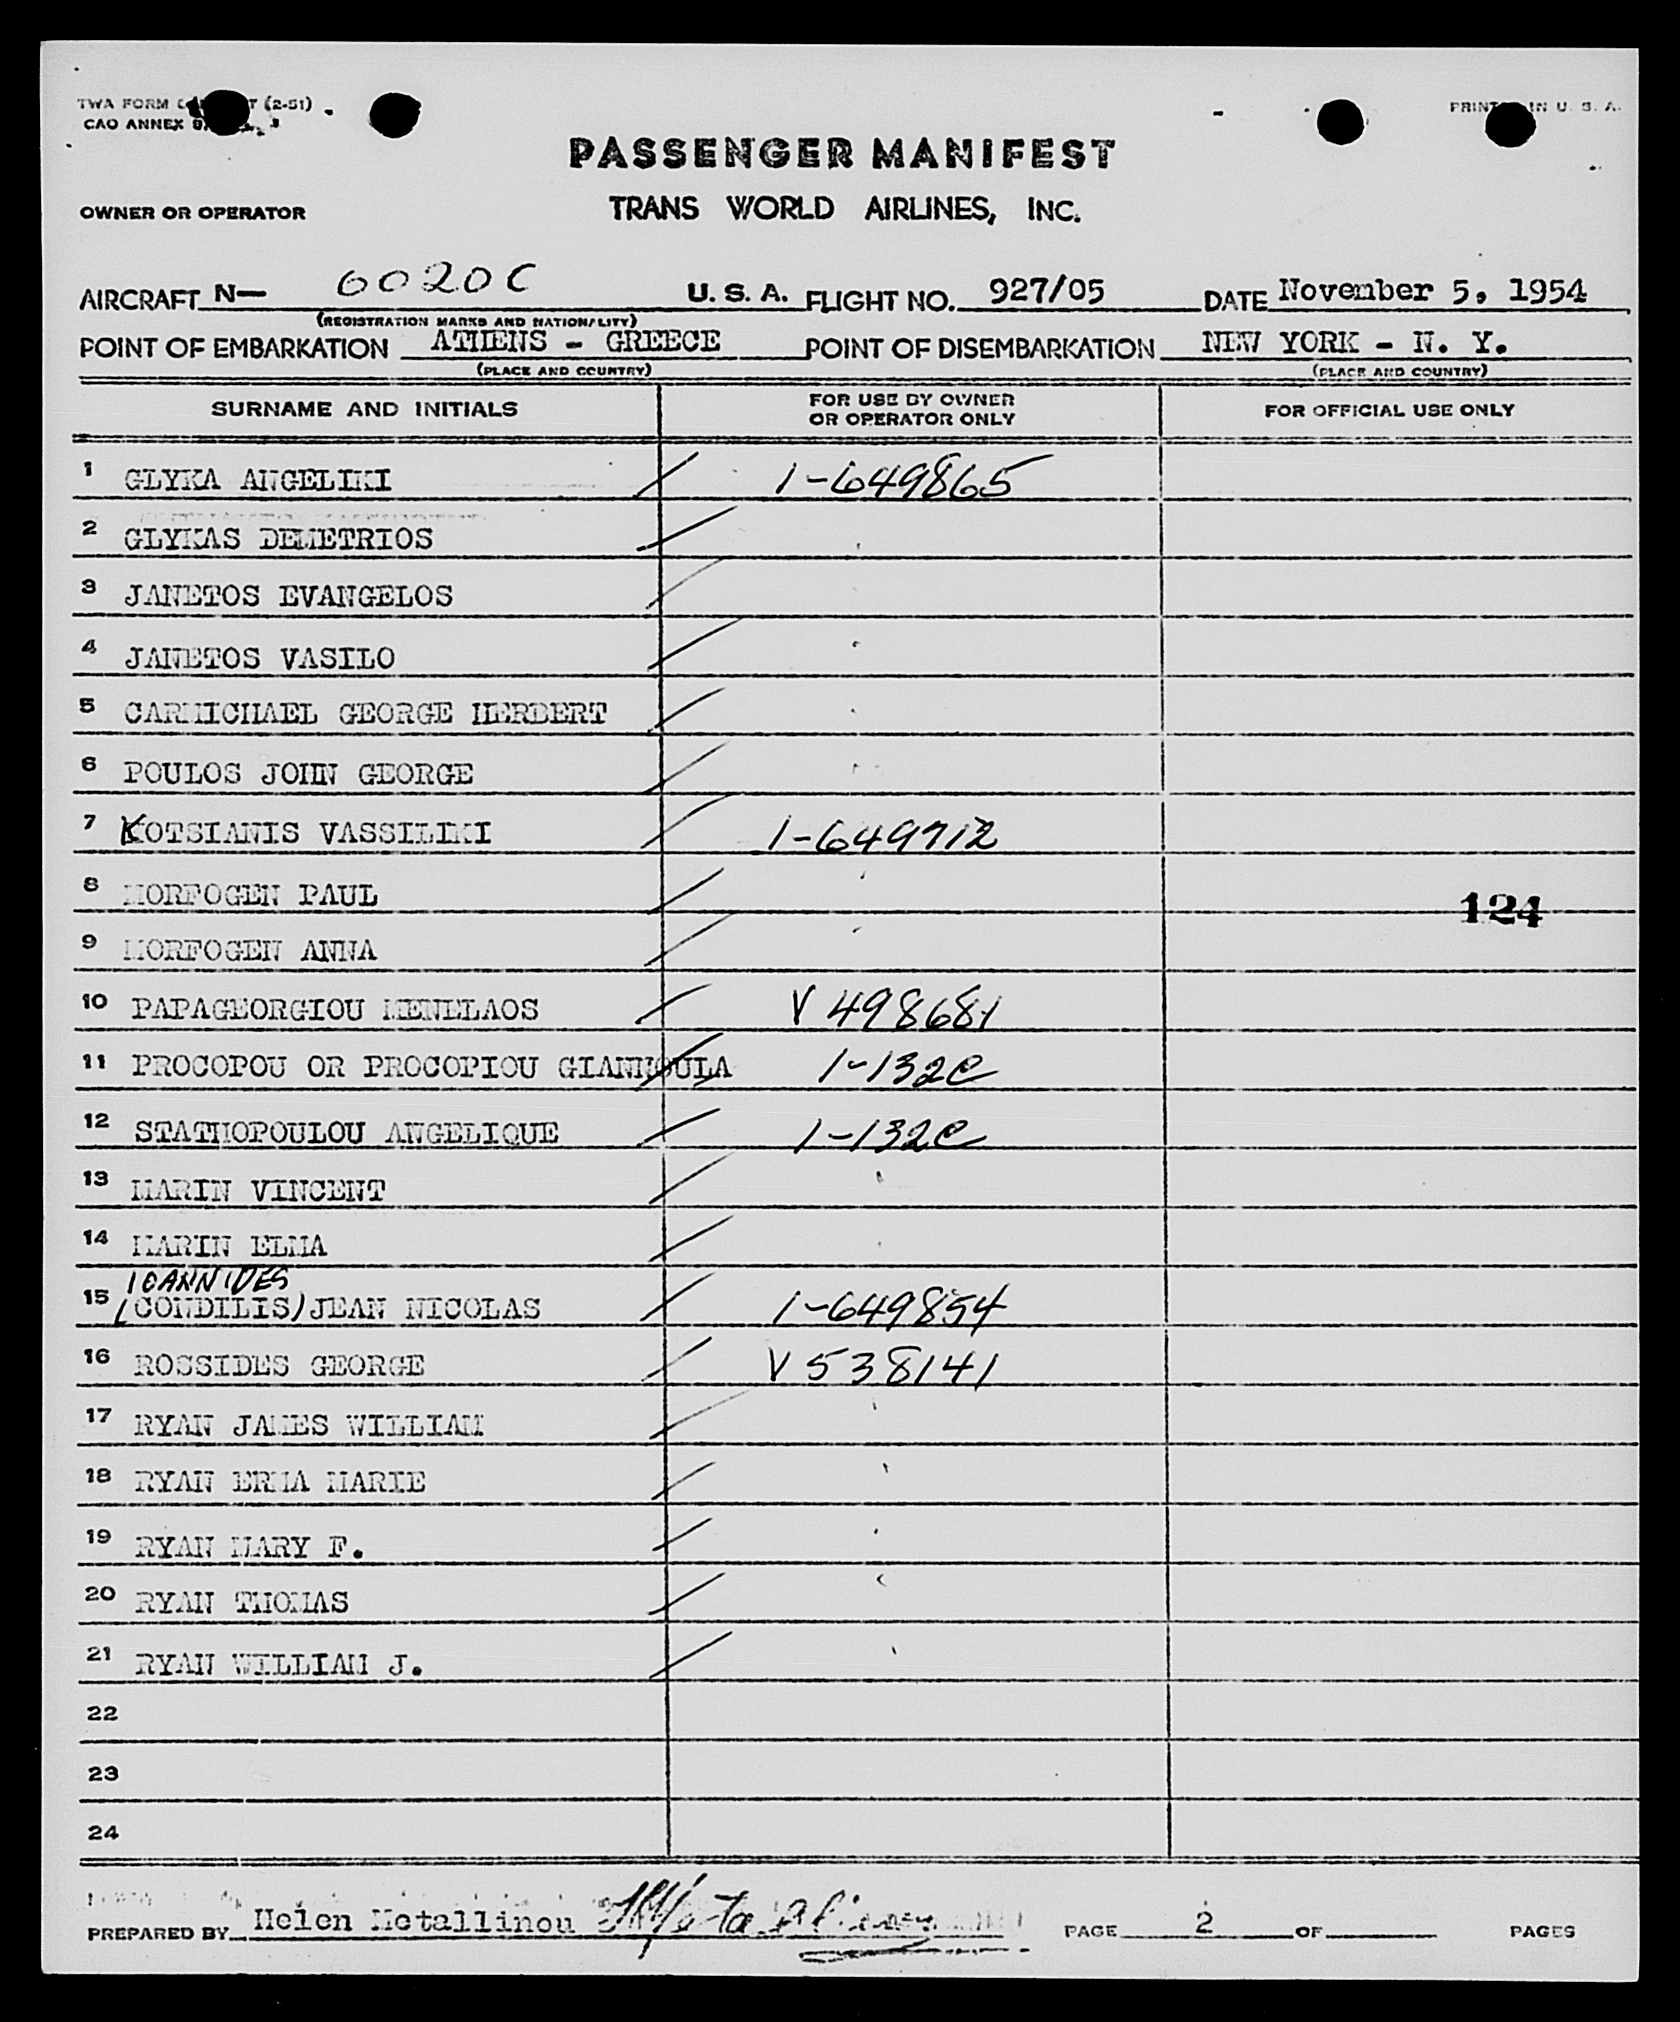 TWA FORM (2-51)
CAO ANNEX 9,
PRINTED IN U. S. A.
PASSENGER MANIFEST
OWNER OR OPERATOR
TRANS WORLD AIRLINES, INC.
AIRCRAFT N— 6020C U. S. A. FLIGHT NO. 927/05 DATE November 5, 1954
(REGISTRATION MARKS AND NATIONALITY)
POINT OF EMBARKATION ATHENS - GREECE POINT OF DISEMBARKATION NEW YORK - N. Y.
(PLACE AND COUNTRY) (PLACE AND COUNTRY)
SURNAME AND INITIALS FOR USE BY OWNER OR OPERATOR ONLY FOR OFFICIAL USE ONLY
1 GLYKA ANGELIKI 1-649865
2 GLYKAS DEMETRIOS
3 JANETOS EVANGELOS
4 JANETOS VASILO
5 CARMICHAEL GEORGE HERBERT
6 POULOS JOHN GEORGE
7 KOTSIANIS VASSILIKI 1-649712
8 MORFOGEN PAUL
124
9 MORFOGEN ANNA
10 PAPAGEORGIOU MENELAOS V 498681
11 PROCOPOU OR PROCOPIOU GIANNOULA 1-132C
12 STATHOPOULOU ANGELIQUE 1-132C
13 MARIN VINCENT
14 MARIN ELMA
IOANNIDES
15 (CONDILIS) JEAN NICOLAS 1-649854
16 ROSSIDES GEORGE V 538141
17 RYAN JAMES WILLIAM
18 RYAN ERMA MARIE
19 RYAN MARY F.
20 RYAN THOMAS
21 RYAN WILLIAM J.
22
23
24
PREPARED BY Helen Metallinou PAGE 2 OF PAGES